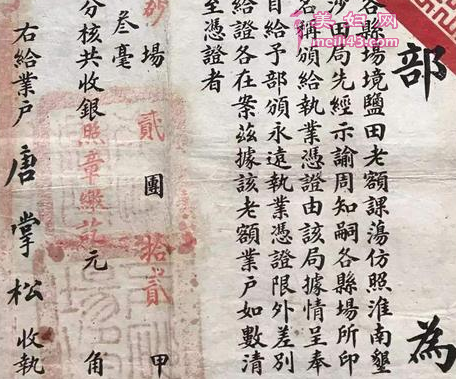 部為
各縣場境鹽田老額課蕩仿照淮南墾
沙田局先經示諭周知嗣各縣場所印
名稱頒給執業憑證由該局據情呈奉
自給予部頒永遠執業憑證限外差別
給證各在案茲據該老額業戶如數清
至憑證者
場貳團拾貳甲
叁毫
分核共收銀照章繳訖元角
右給業戶唐掌松收執
美妇网
meili43.com